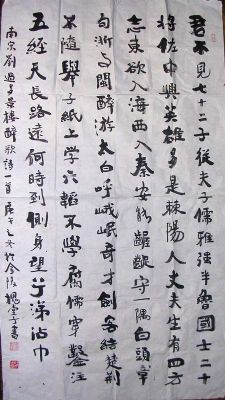 君不見七十二子從夫子儒雅強半魯國士二十
將佐中興英雄多是棘陽人丈夫生有四方
志東欲入海西入秦安能齷齪守一隅白頭章
句浙与閩醉游太白呼峨岷奇才劍客結楚荊
不隨舉子紙上學六韜不學腐儒穿鑿注
五經天長路遠何時到側身望兮涕沾巾
南宋劉過多景樓醉歌詩一首庚午之冬於金陵